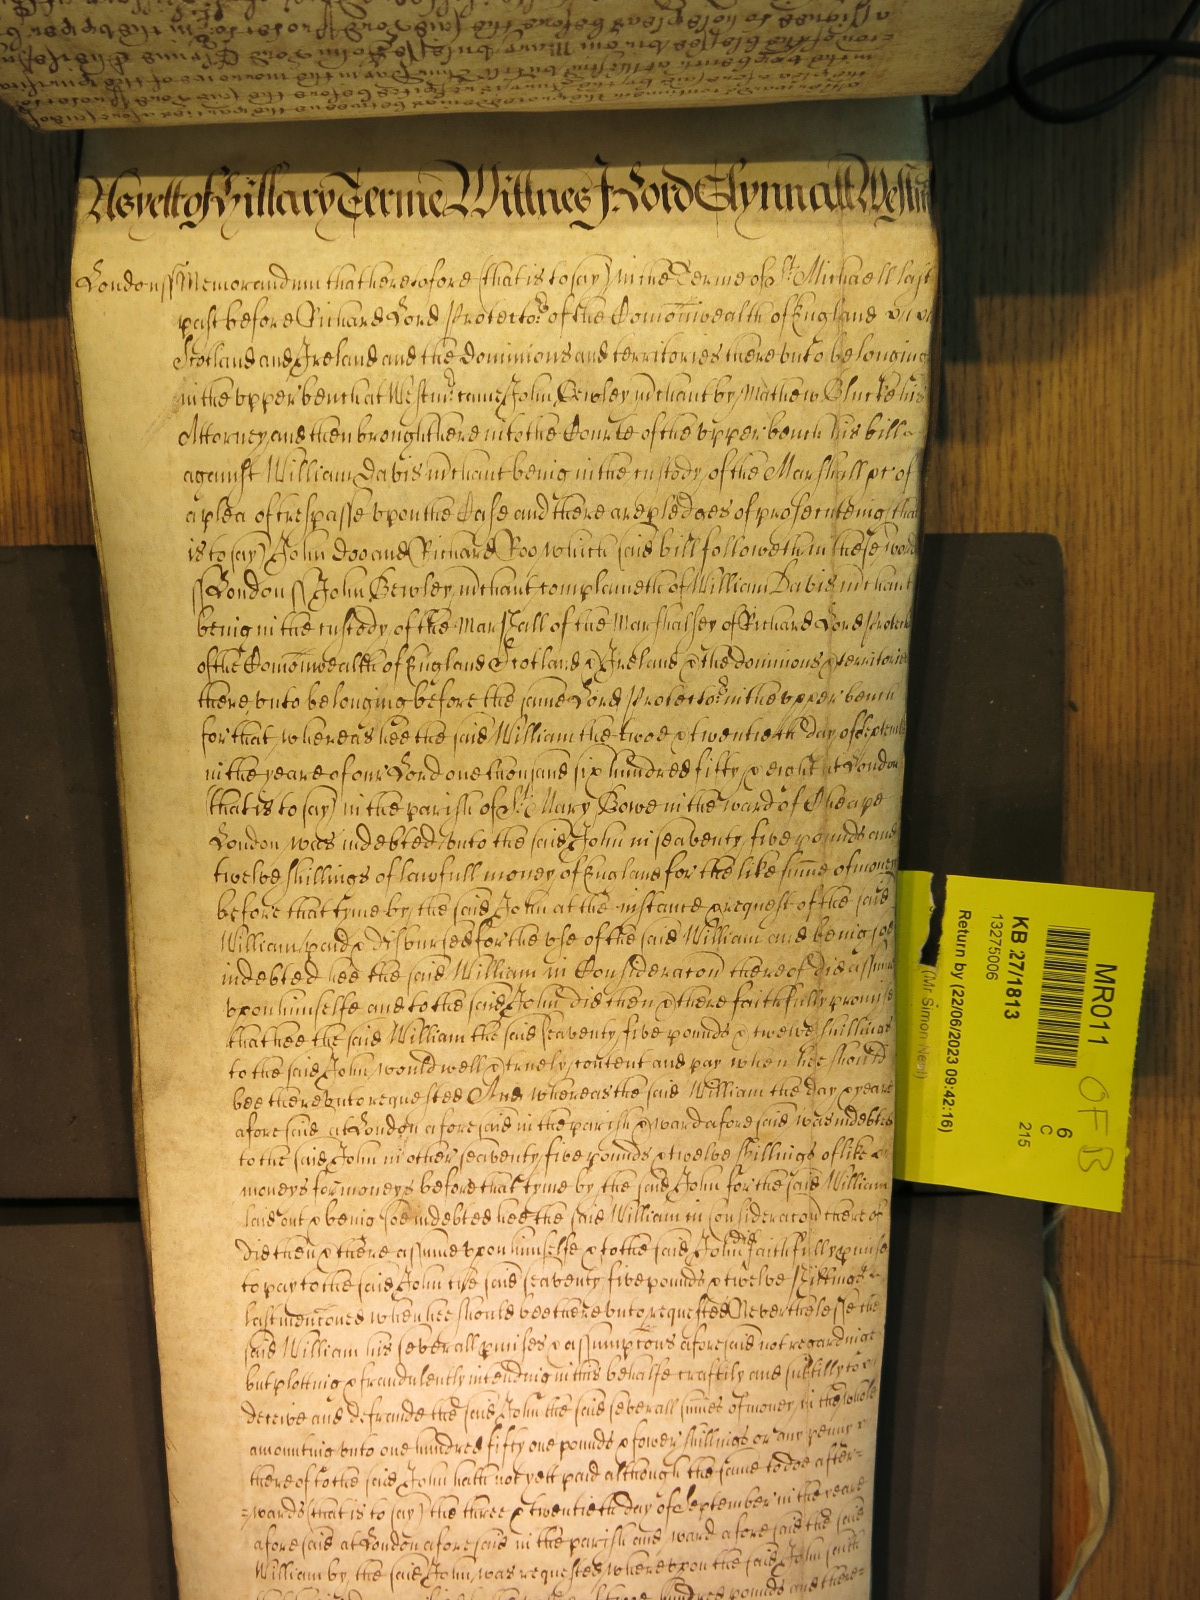 As yett of Hillary Terme Wittnes J: Lord Glynn att Westm
London ss Memorandum that heretofore (that is to say) in the Terme of St. Michaell last
past before Richard Lord Protector of the Comonwealth of England
Scotland and Ireland and the dominions and territories there vnto belonging
in the vpper bench at Westmr came John Bewley mchant by Mathew his
Attorney and then brought here into the Courte of the vpper bench his bill
against William Davis mchant being in the custody of the Marshall &c of
a plea of trespasse vpon the Case and there are pledges of prosecuteing that
is to say) John Doo and Richard Roo which said bill followeth in these word
ss London ss John Bewley mchant complaineth of William Davis mchant
being in the custody of the Marshall of the Marshalsey of Richard Lord Protect
of the Comonwealth of England Scotland & Ireland & the dominions & territorie
there vnto belonging before the same Lord Protector in the vpper bench
for that whereas hee the said William the twoe & twentieth day of Septemb
in the yeare of our Lord one thousand six hundred fifty & eight at London
(that is to say) in the parish of St Mary Bowe in the ward of Cheape
London was indebted vnto the said John in seaventy five pounds and
twelve shillings of lawfull money of England for the like sume of money
before that tyme by the said John at the instance & request of the said
William payd & disbursed for the vse of the said William and being soe
indebted hee the said William in Consideracon thereof did assume
vpon himselfe and to the said John did then & there faithfully promise
that hee the said William the said seaventy five pounds & twelve shillings
to the said John would well & truely content and pay when hee should
bee there vnto requested And whereas the said William the day & yeare
aforesaid at London aforesaid in the parish & ward aforesaid was indebted
to the said John in other seaventy five pounds & twelve shillings of like
moneys for moneys before that tyme by the said John for the said William
laid out & being soe indebted hee the said William in consideracon thereof
did then & there assume vpon himselfe & to the said John did faithfully pmise
to pay to the said John the said seaventy five pounds & twelve shillings
last menconed when hee should bee there vnto requested Neverthelesse the
said William his severall pmises & assumpcons aforesaid not regarding
but plotting & fraudulently intending in this behalfe craftily and subtilly to
deceive and defraude the said John the said severall sumes of money in the whole
amounting vnto one hundred fifty one pounds & fower shillings or any penny
thereof to the said John hath not yett paid although the same to doe after=
=wards (that is to say) the three & twentieth day of September in the yeare
aforesaid at London aforesaid in the parish and ward aforesaid the said
William by the said John was requested wherevpon the said John saith
hundred pounds and there=
MR011
OFB
KB 27/1813
13275006
6
C
215
Return by (22/06/2023 09:42:16)
(Mr Simon Neal)